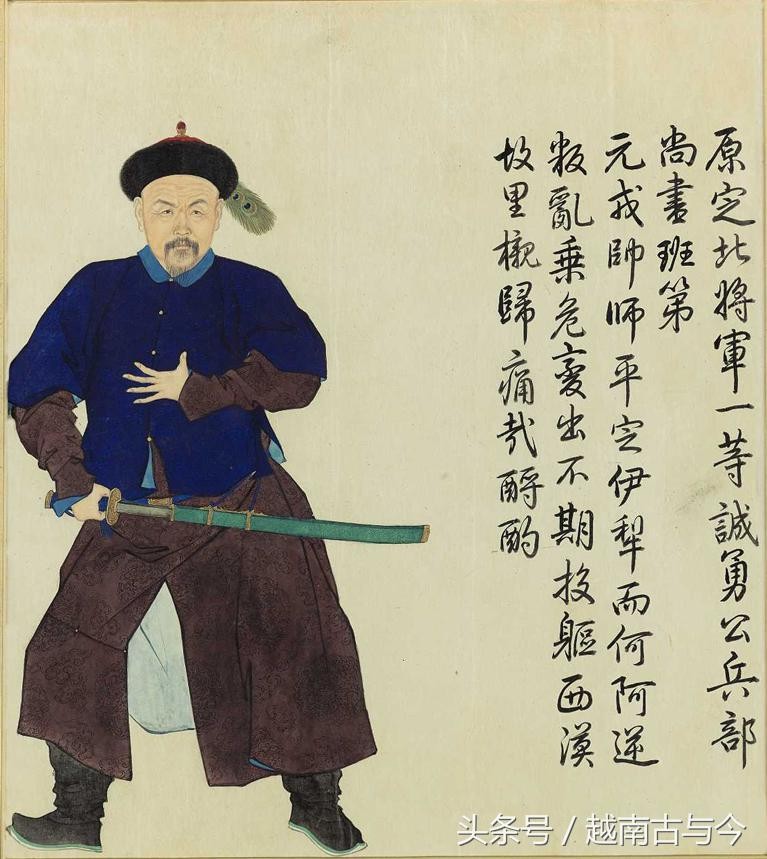 原定北將軍一等誠勇公兵部
尚書班第
元戎帥師平定伊犁而何阿逆
叛亂乗危變出不期投軀西漠
故里櫬歸痛哉酹酌
头条号 / 越南古与今